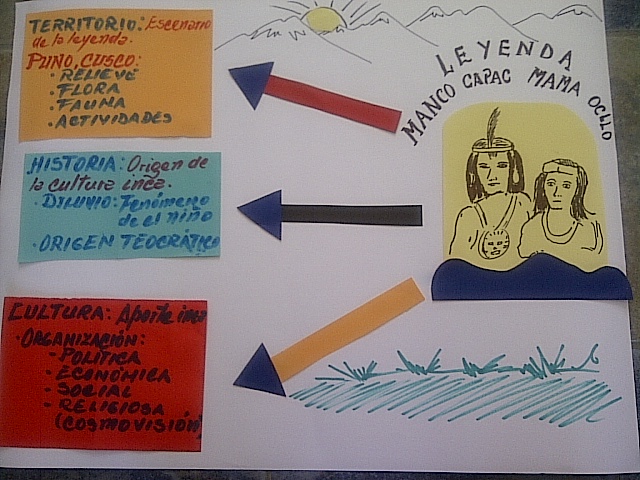 TERRITORIO: Escenario
de la leyenda.
PUNO, CUSCO:
· RELIEVE
· FLORA
· FAUNA
· ACTIVIDADES
HISTORIA: Origen de
la cultura inca.
· DILUVIO: Fenómeno
de el niño
· ORIGEN TEOCRÁTICO
CULTURA: Aporte inca
· ORGANIZACIÓN:
- POLÍTICA
- ECONÓMICA
- SOCIAL
- RELIGIOSA
(COSMOVISIÓN)
LEYENDA
MANCO CAPAC MAMA OCLLO